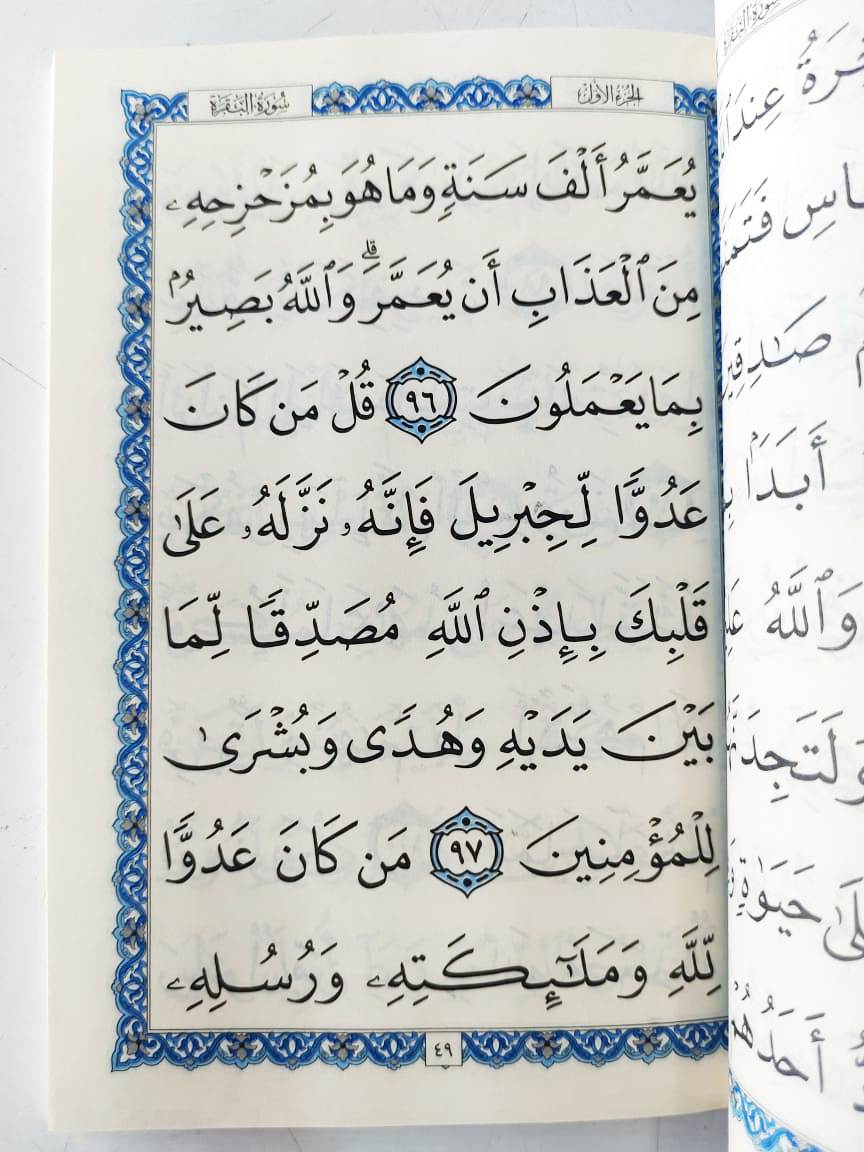 الجزء الأول
سورة البقرة
يُعَمَّرُ أَلْفَ سَنَةٍ وَمَا هُوَ بِمُزَحْزِحِهِۦ
مِنَ ٱلْعَذَابِ أَن يُعَمَّرَ ۗ وَٱللَّهُ بَصِيرُۢ
بِمَا يَعْمَلُونَ ٩٦ قُلْ مَن كَانَ
عَدُوًّا لِّجِبْرِيلَ فَإِنَّهُۥ نَزَّلَهُۥ عَلَىٰ
قَلْبِكَ بِإِذْنِ ٱللَّهِ مُصَدِّقًا لِّمَا
بَيْنَ يَدَيْهِ وَهُدًى وَبُشْرَىٰ
لِلْمُؤْمِنِينَ ٩٧ مَن كَانَ عَدُوًّا
لِّلَّهِ وَمَلَـٰٓئِكَتِهِۦ وَرُسُلِهِۦ
٤٩
سورة البقرة
عِندَ
صَـٰدِقِينَ
أَبَدًۢا
وَٱللَّهُ
حَيَوٰةٍ
أَحَدُهُمْ